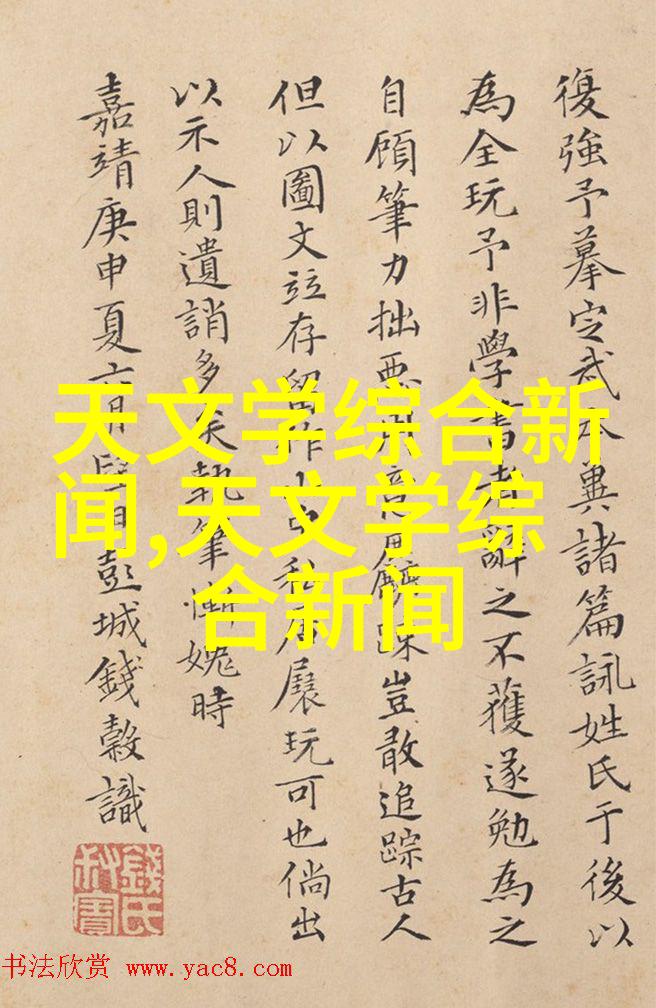 復強予摹定武本兼諸篇詠姓氏于後以
為全玩予非學書者辭之不獲遂勉為之
自顧筆力拙惡豈敢追踪古人
但以圖文並存留作私居展玩可也倘出
以示人則遺誚多矣執筆慚媿時
嘉靖庚申夏六月彭城錢榖識
錢氏
天文学综合新
闻,天文学综
合新闻
书法欣赏 www.yac8.com